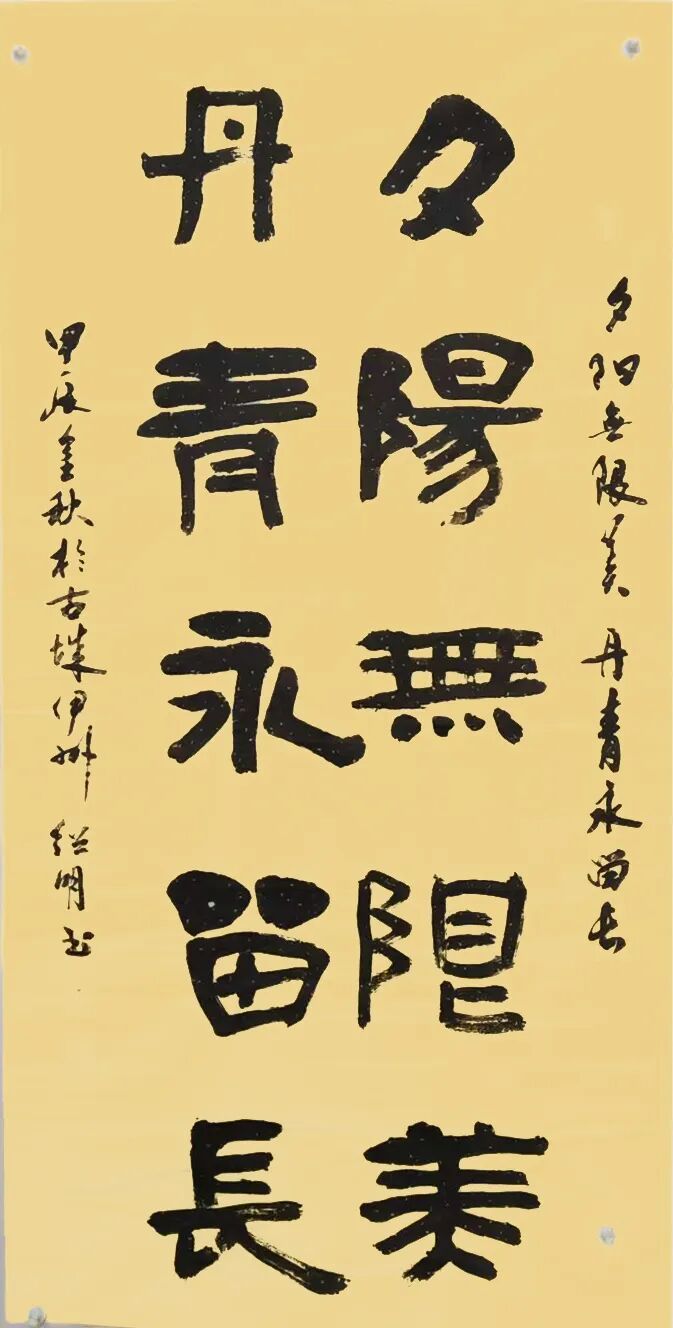 夕阳無限美 丹青永留长
夕陽無限美
丹青永留長
甲辰金秋於古城伊州 绍明书